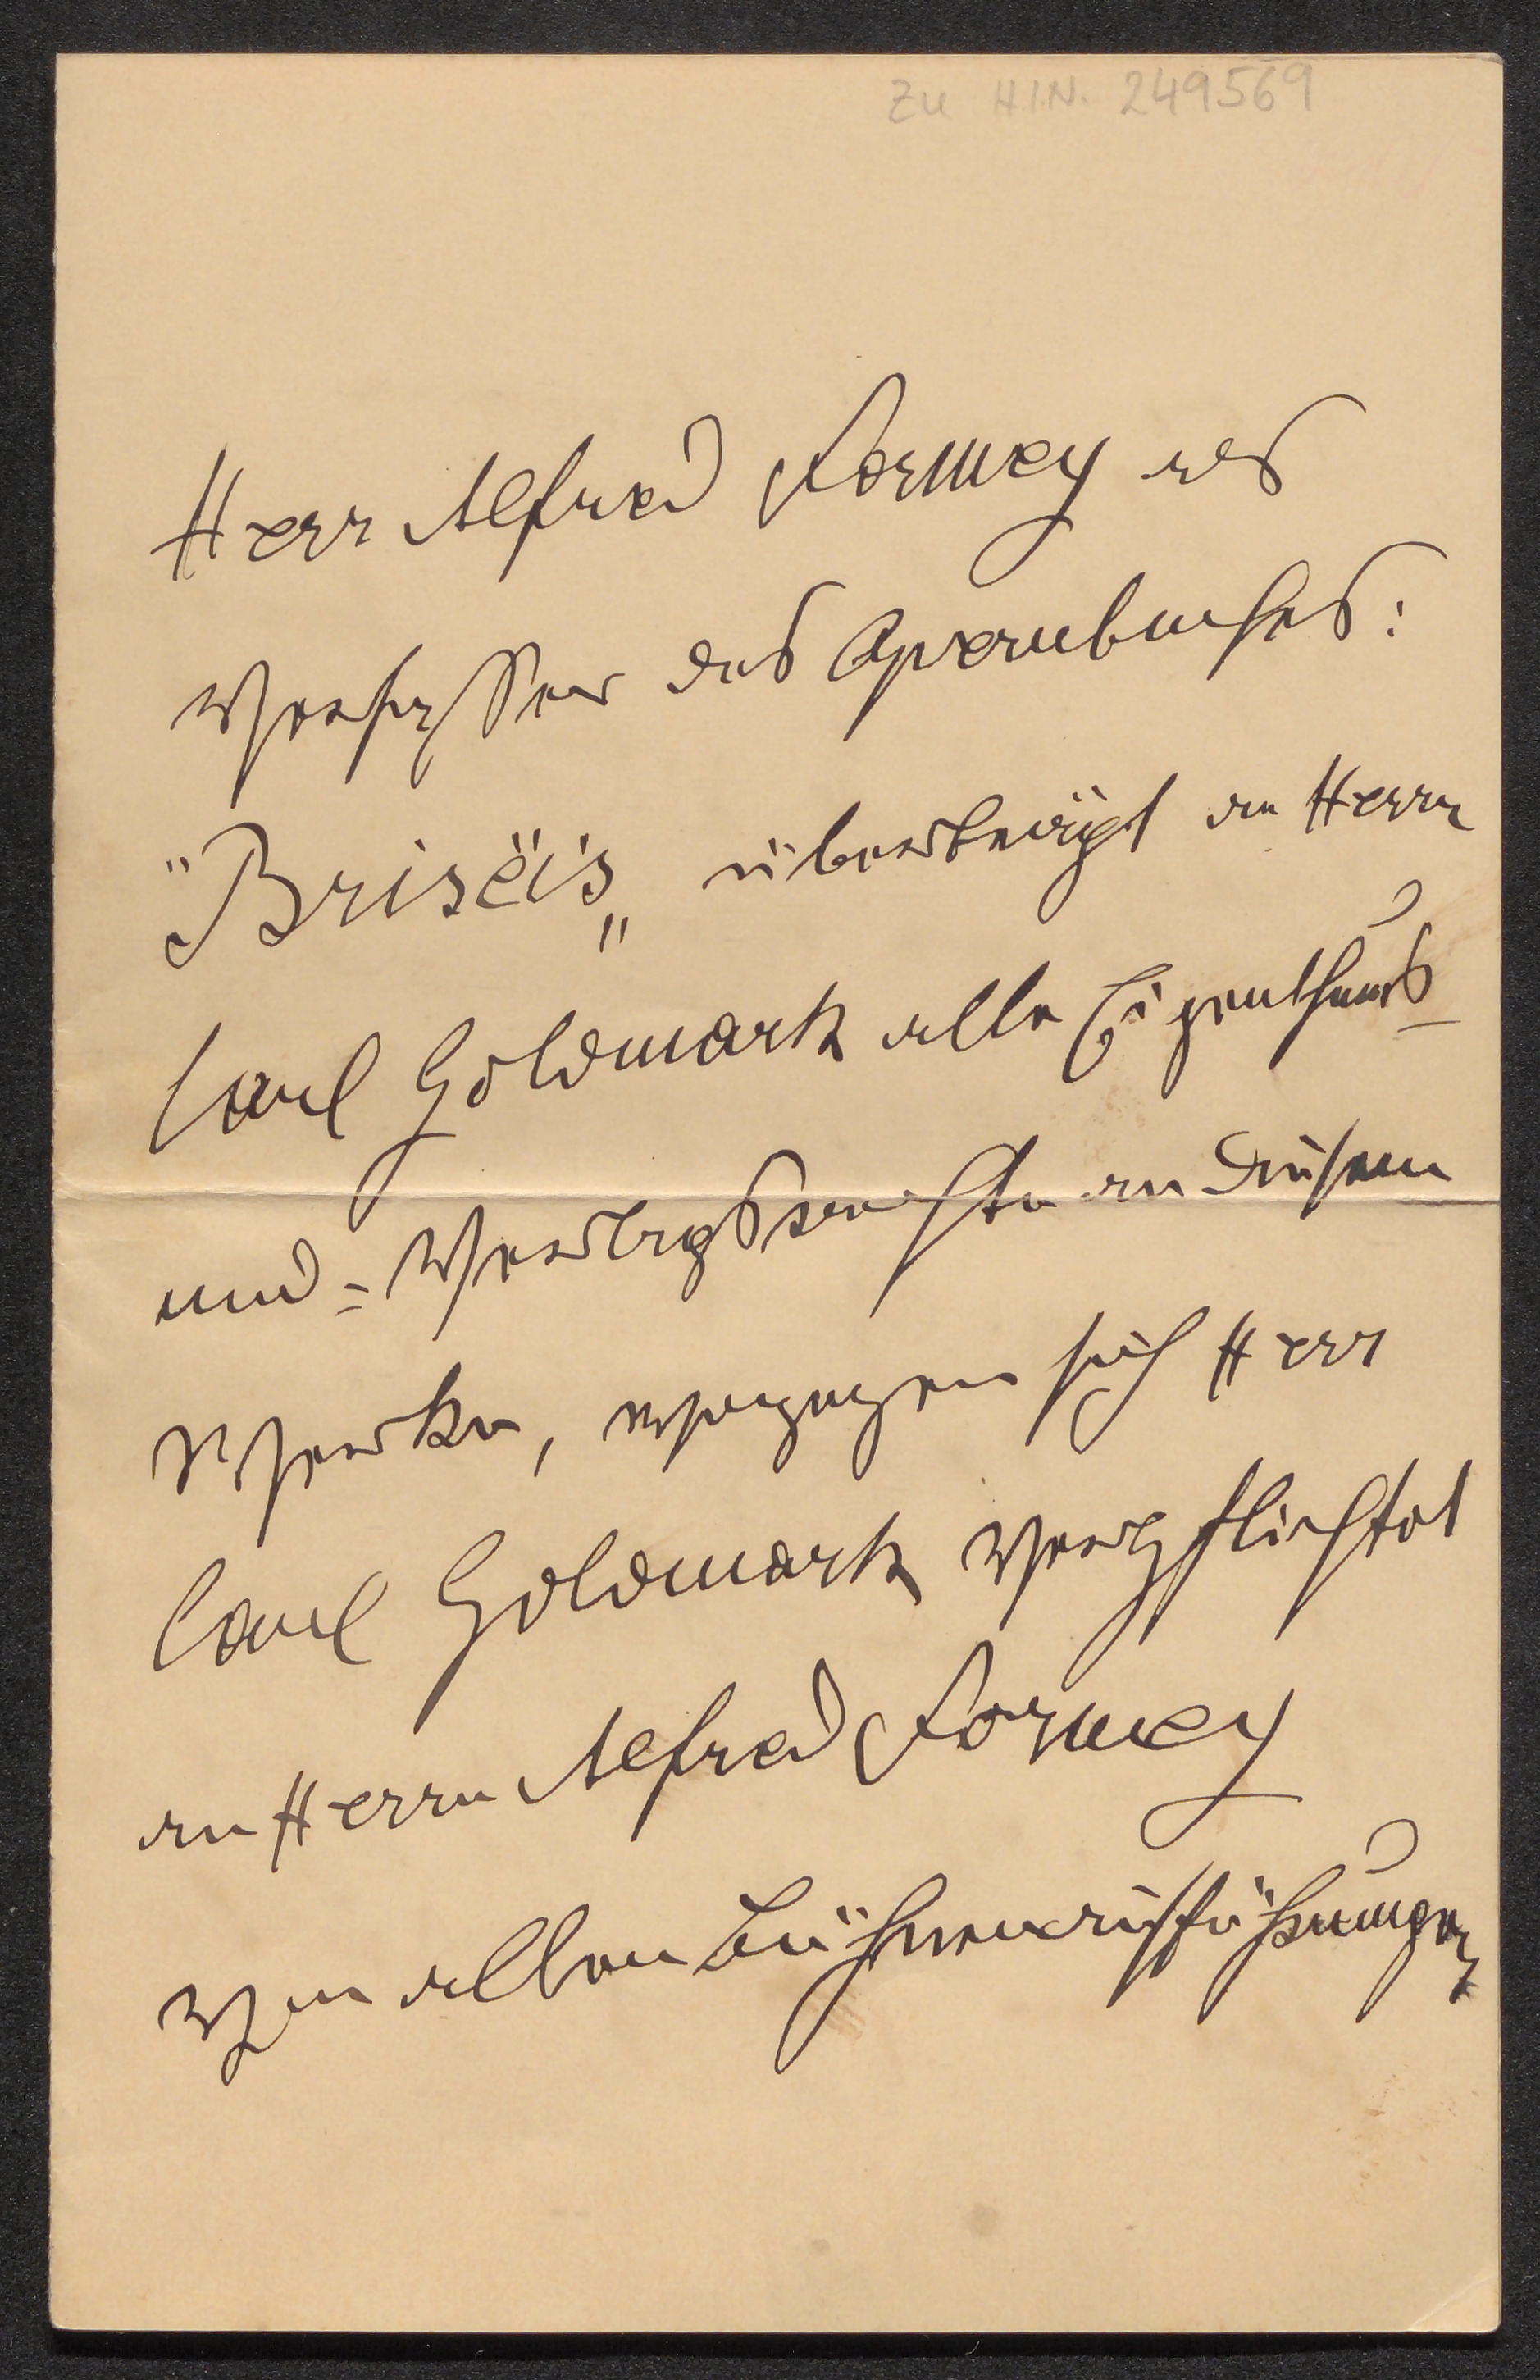 Zu H.I.N. 249569
Herr Alfred Formey als
Verfasser des Opernbuches:
"Brisëis„ überträgt an Herrn
Carl Goldmark alle Eigenthums-
und = Verlagsrechte an diesem
Werke, wogegen sich Herr
Carl Goldmark verpflichtet
an Herrn Alfred Formey
von allen Bühnenaufführungen